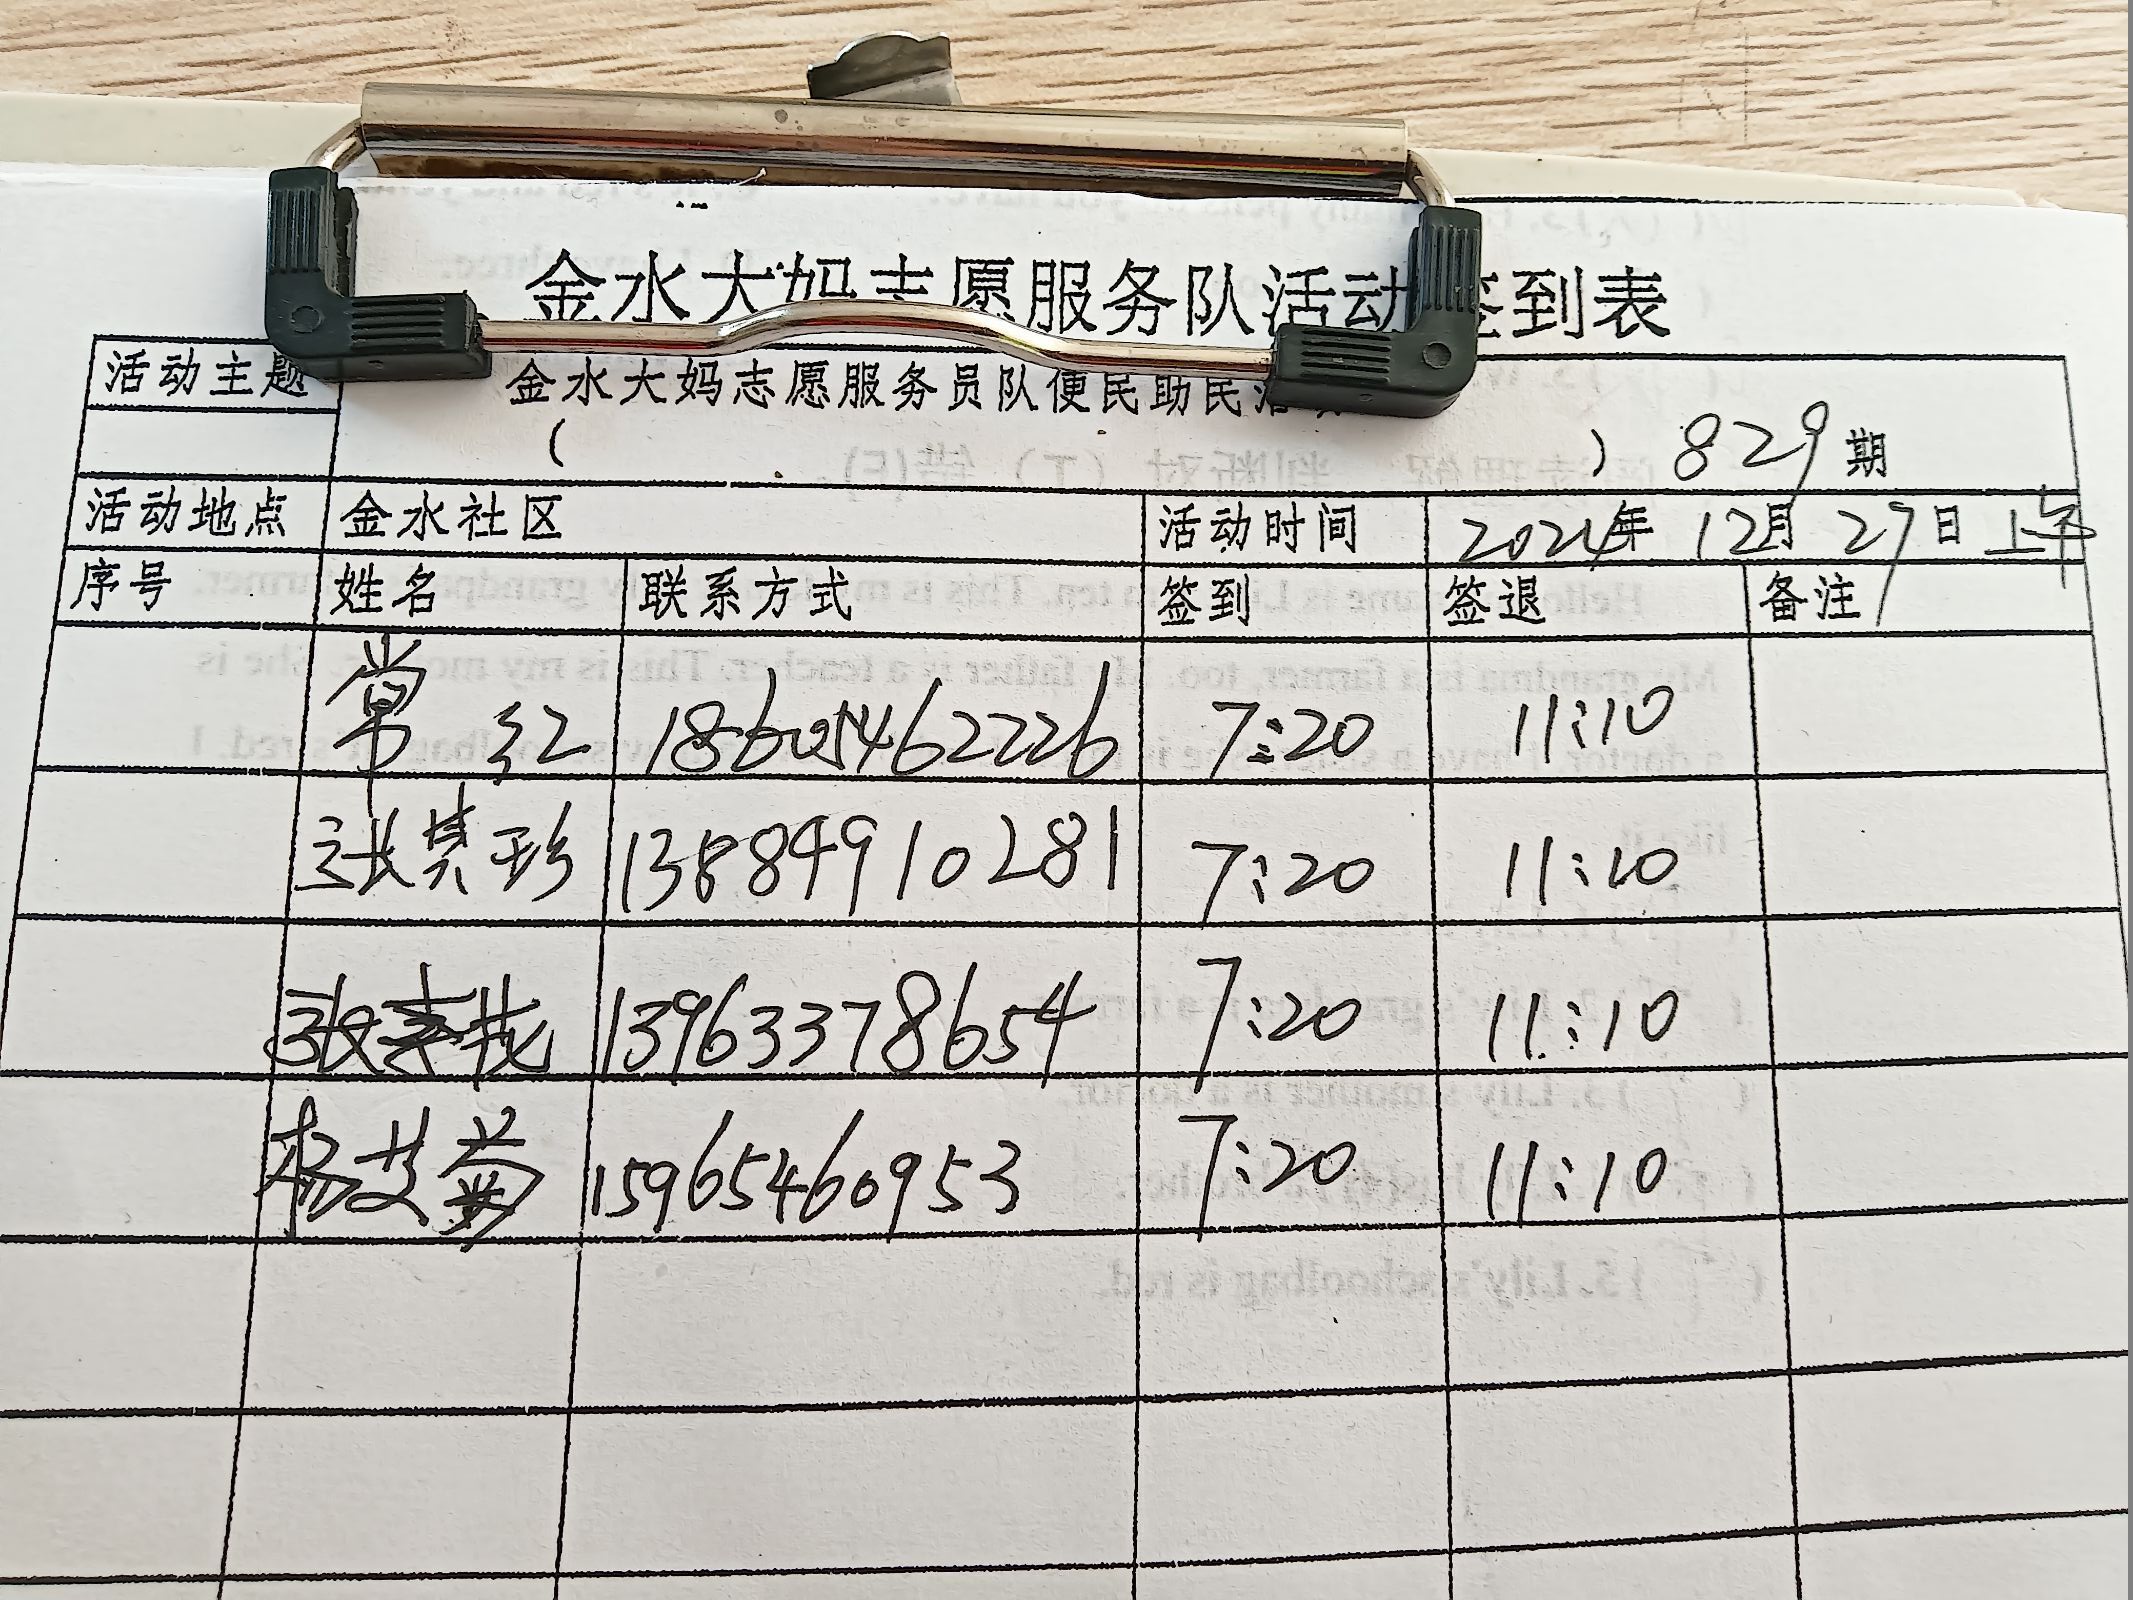 金水大妈志愿服务队活动签到表
活动主题 金水大妈志愿服务员队便民助民活动
( ) 829期
活动地点 金水社区 活动时间 2024年12月27日上午
序号 姓名 联系方式 签到 签退 备注
常红 18605462226 7:20 11:10
张其珍 13884910281 7:20 11:10
张 13963378654 7:20 11:10
杨艾 15965460953 7:20 11:10